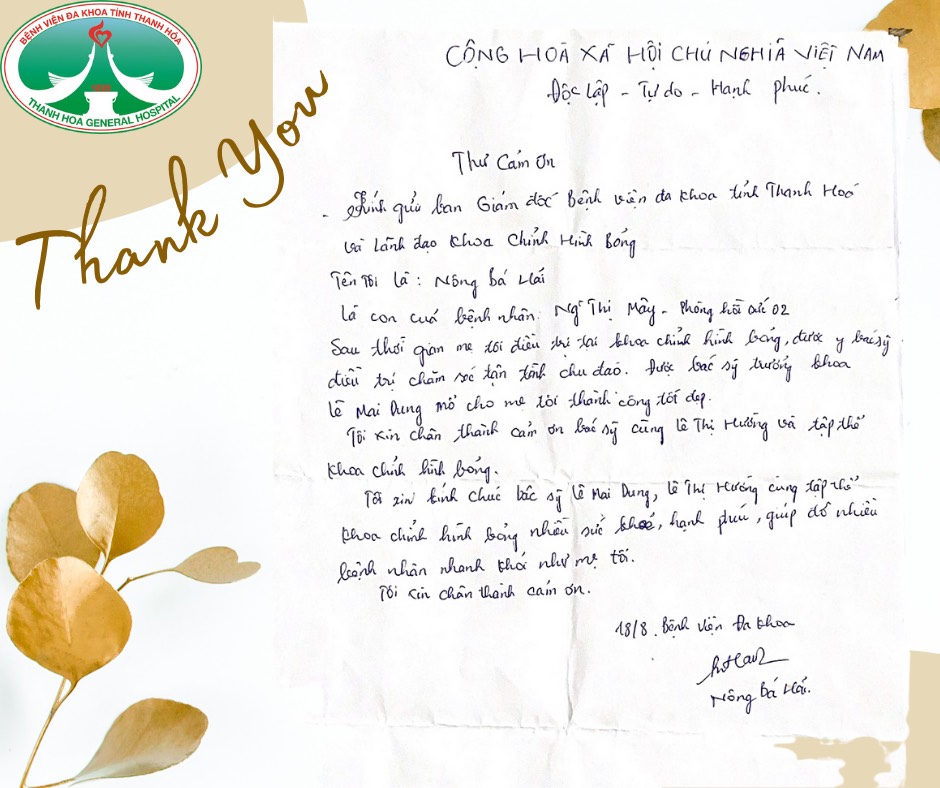 BỆNH VIỆN ĐA KHOA TỈNH THANH HÓA
THANH HOA GENERAL HOSPITAL
Thank You
CỘNG HOÀ XÃ HỘI CHỦ NGHĨA VIỆT NAM
Độc lập - Tự do - Hạnh phúc.
Thư Cảm Ơn
- Kính gửi ban Giám đốc Bệnh viện đa khoa tỉnh Thanh Hoá
và Lãnh đạo khoa Chỉnh Hình Bỏng
Tên tôi là : Nông Bá Hải
là con của bệnh nhân. Ng Thị Mây - Phòng hồi sức 02
Sau thời gian mẹ tôi điều trị tại khoa chỉnh hình bỏng, được y bác sỹ
điều trị chăm sóc tận tình chu đáo. Được bác sỹ trưởng khoa
Lê Mai Dung mổ cho mẹ tôi thành công tốt đẹp.
Tôi xin chân thành cảm ơn bác sỹ cùng Lê Thị Hường và tập thể
khoa chỉnh hình bỏng.
Tôi xin kính chúc bác sỹ Lê Mai Dung, Lê Thị Hường cùng tập thể
khoa chỉnh hình bỏng nhiều sức khoẻ, hạnh phúc, giúp đỡ nhiều
bệnh nhân nhanh khỏi như mẹ tôi.
Tôi xin chân thành cảm ơn.
18/8. Bệnh viện Đa khoa
Nông Bá Hải.